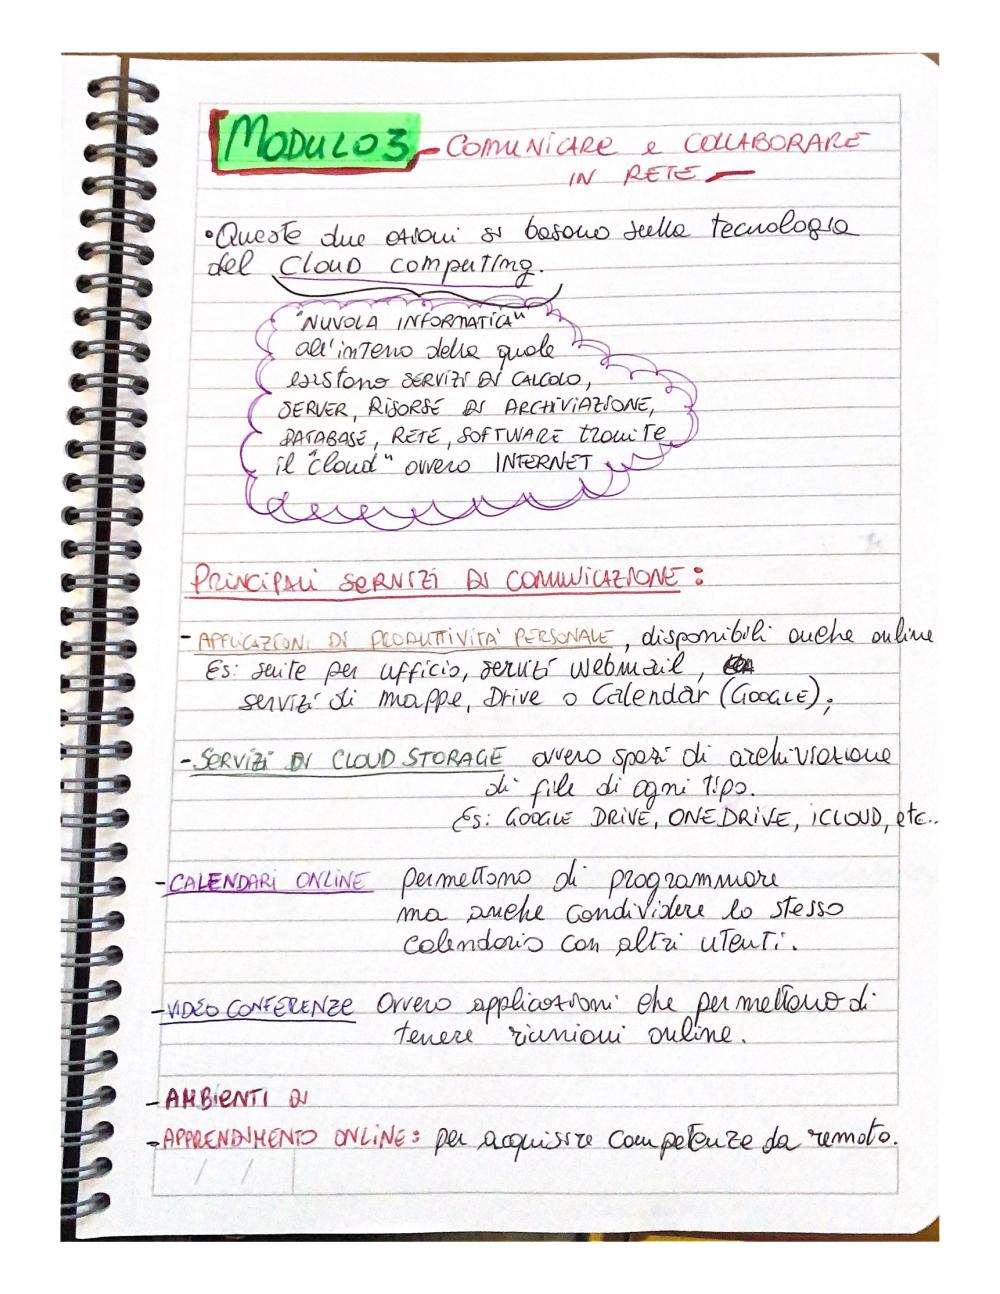 MODULO 3 - COMUNICARE e COLLABORARE
IN RETE -
• Queste due azioni si basano sulla tecnologia
del Cloud computing.
"NUVOLA INFORMATICA"
all'interno della quale
esistono SERVIZI DI CALCOLO,
SERVER, RISORSE DI ARCHIVIAZIONE,
DATABASE, RETE, SOFTWARE tramite
il "cloud" ovvero INTERNET
PRINCIPALI SERVIZI DI COMUNICAZIONE:
- APPLICAZIONI DI PRODUTTIVITA' PERSONALE, disponibili anche online
Es: suite per ufficio, servizi webmail,
servizi di mappe, Drive o Calendar (GOOGLE);
- SERVIZI DI CLOUD STORAGE ovvero spazi di archiviazione
di file di ogni tipo.
Es: GOOGLE DRIVE, ONEDRIVE, iCLOUD, etc..
- CALENDARI ONLINE permettono di programmare
ma anche condividere lo stesso
calendario con altri utenti.
- VIDEO CONFERENZE Ovvero applicazioni che permettono di
tenere riunioni online.
- AMBIENTI DI
- APPRENDIMENTO ONLINE: per acquisire competenze da remoto.
/ /